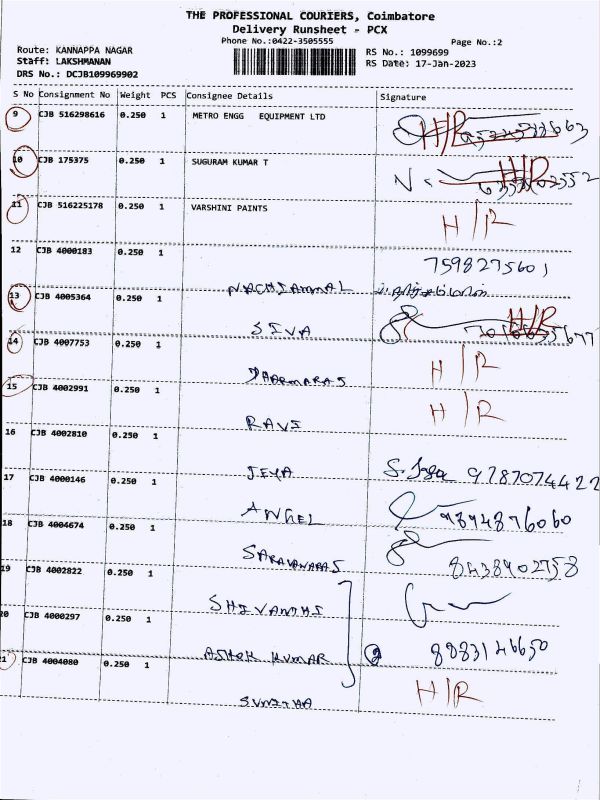 THE PROFESSIONAL COURIERS, Coimbatore
Delivery Runsheet - PCX
Phone No.:0422-3505555 Page No.:2
Route: KANNAPPA NAGAR RS No.: 1099699
Staff: LAKSHMANAN RS Date: 17-Jan-2023
DRS No.: DCJB109969902
S No Consignment No Weight PCS Consignee Details Signature
9 CJB 516298616 0.250 1 METRO ENGG EQUIPMENT LTD H/R
10 CJB 175375 0.250 1 SUGURAM KUMAR T H/R
11 CJB 516225178 0.250 1 VARSHINI PAINTS H/R
12 CJB 4000183 0.250 1 7598275601
NACHIAMMAL
13 CJB 4005364 0.250 1 H/R
SIVA
14 CJB 4007753 0.250 1 H/R
DHARMARAS
15 CJB 4002991 0.250 1 H/R
RAVI
16 CJB 4002810 0.250 1
JEYA S. Jeya 9787074422
17 CJB 4000146 0.250 1
ANGEL 9894876060
18 CJB 4004674 0.250 1
SARAVANARAS 8438902758
19 CJB 4002822 0.250 1
SHIVANTHI
20 CJB 4000297 0.250 1
ASHOK KUMAR 8883146650
21 CJB 4004080 0.250 1 H/R
SUNITHA